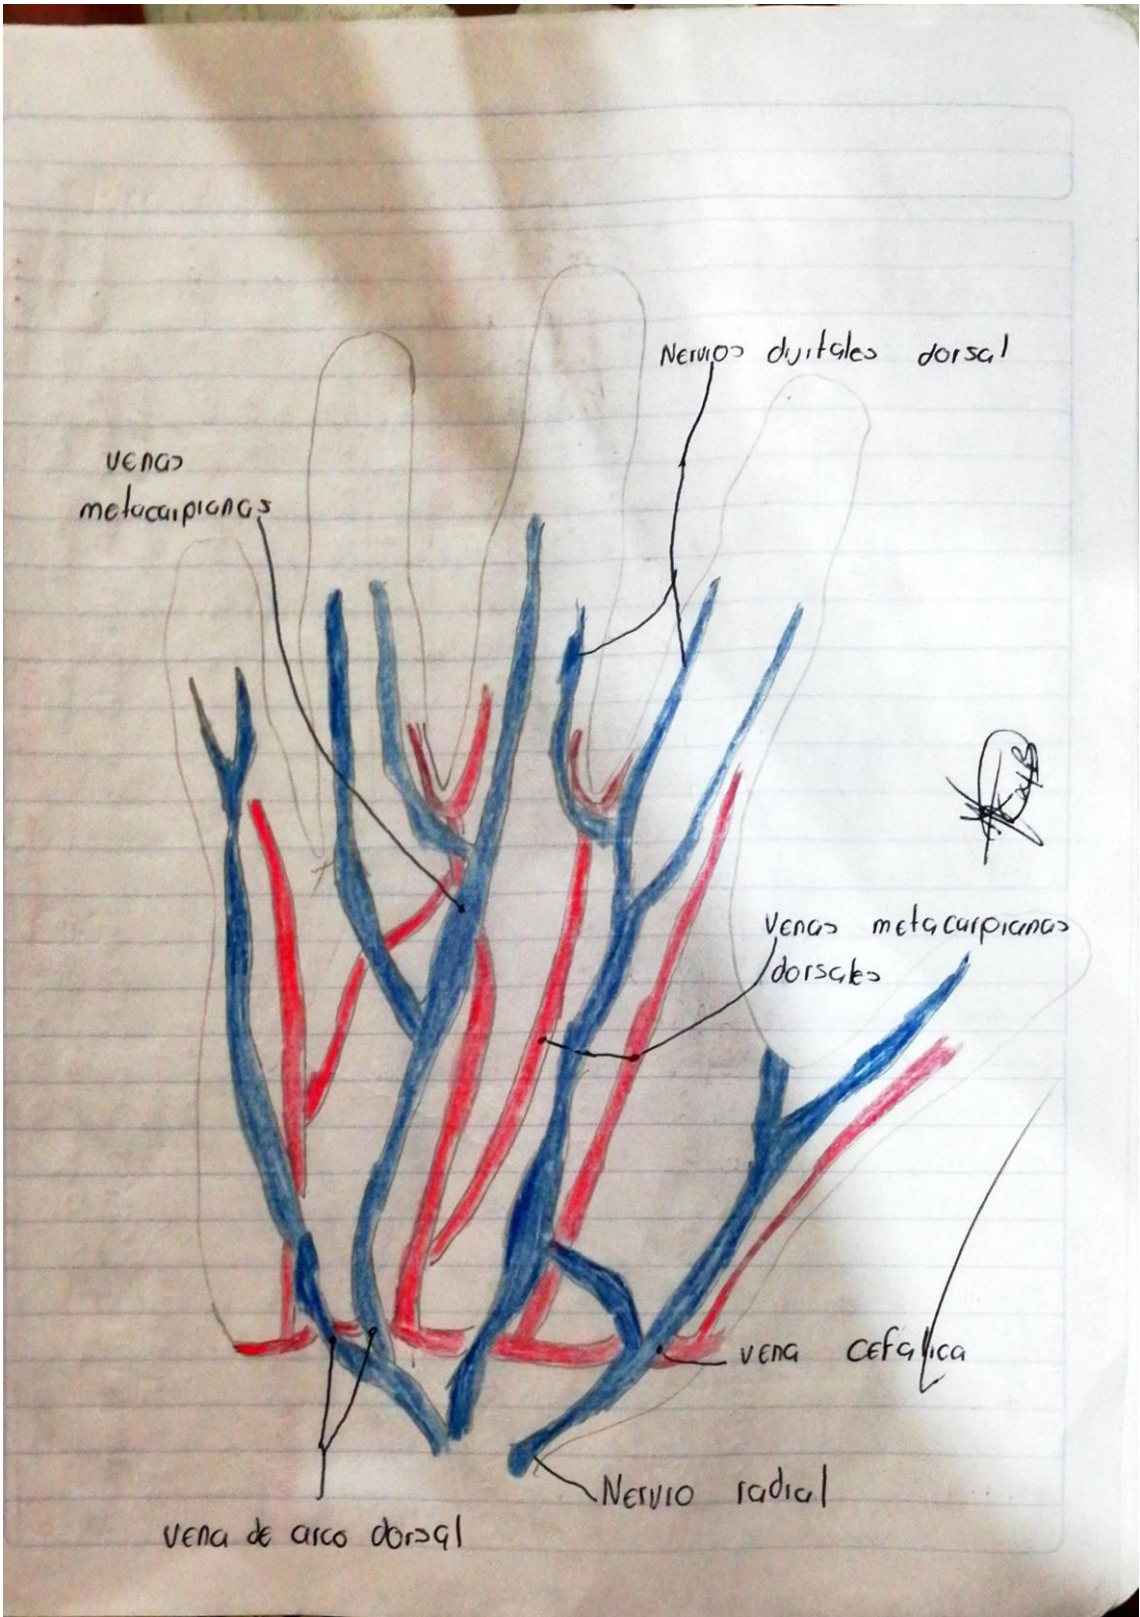 Nervios dijitales dorsal
venas
metacarpianas
venas metacarpianas
dorsales
vena cefalica
Nervio radial
vena de arco dorsal